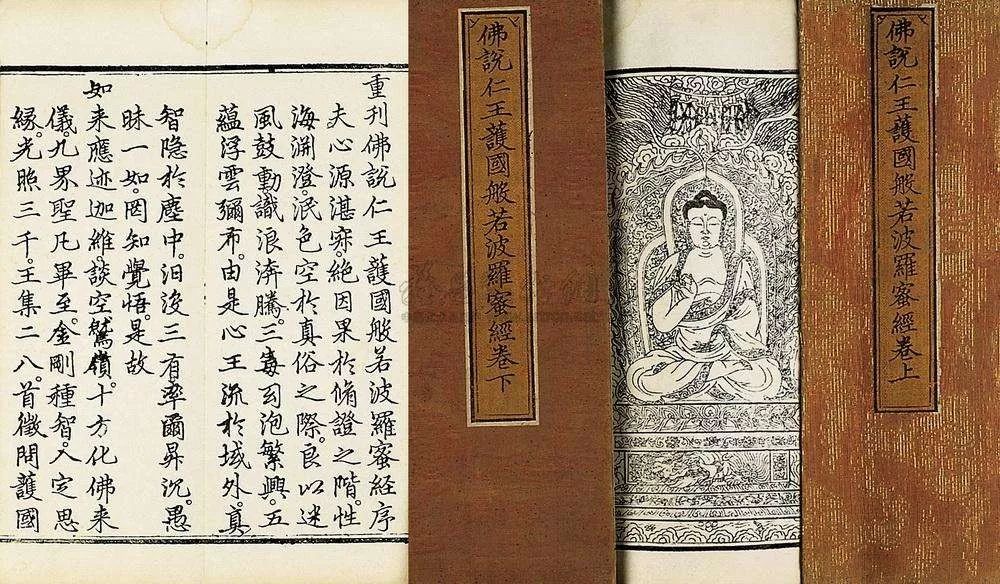 佛說仁王護國般若波羅蜜經卷上
佛說仁王護國般若波羅蜜經卷下
重刊佛說仁王護國般若波羅蜜經序
夫心源湛寂。絕因果於脩證之階。性
海渊澄。泯色空於真俗之際。良以迷
風鼓動。識浪渀騰。三毒幻泡繁興。五
蘊浮雲彌布。由是心王流於域外。真
智隐於塵中。汩没三有。率爾昇沉。愚
昧一如。罔知覺悟。是故
如来應迹迦維。談空鷲嶺。十方化佛来
儀。九界聖凡畢至。金剛種智。入定思
緣。光照三千。王集二八。首徵問護國